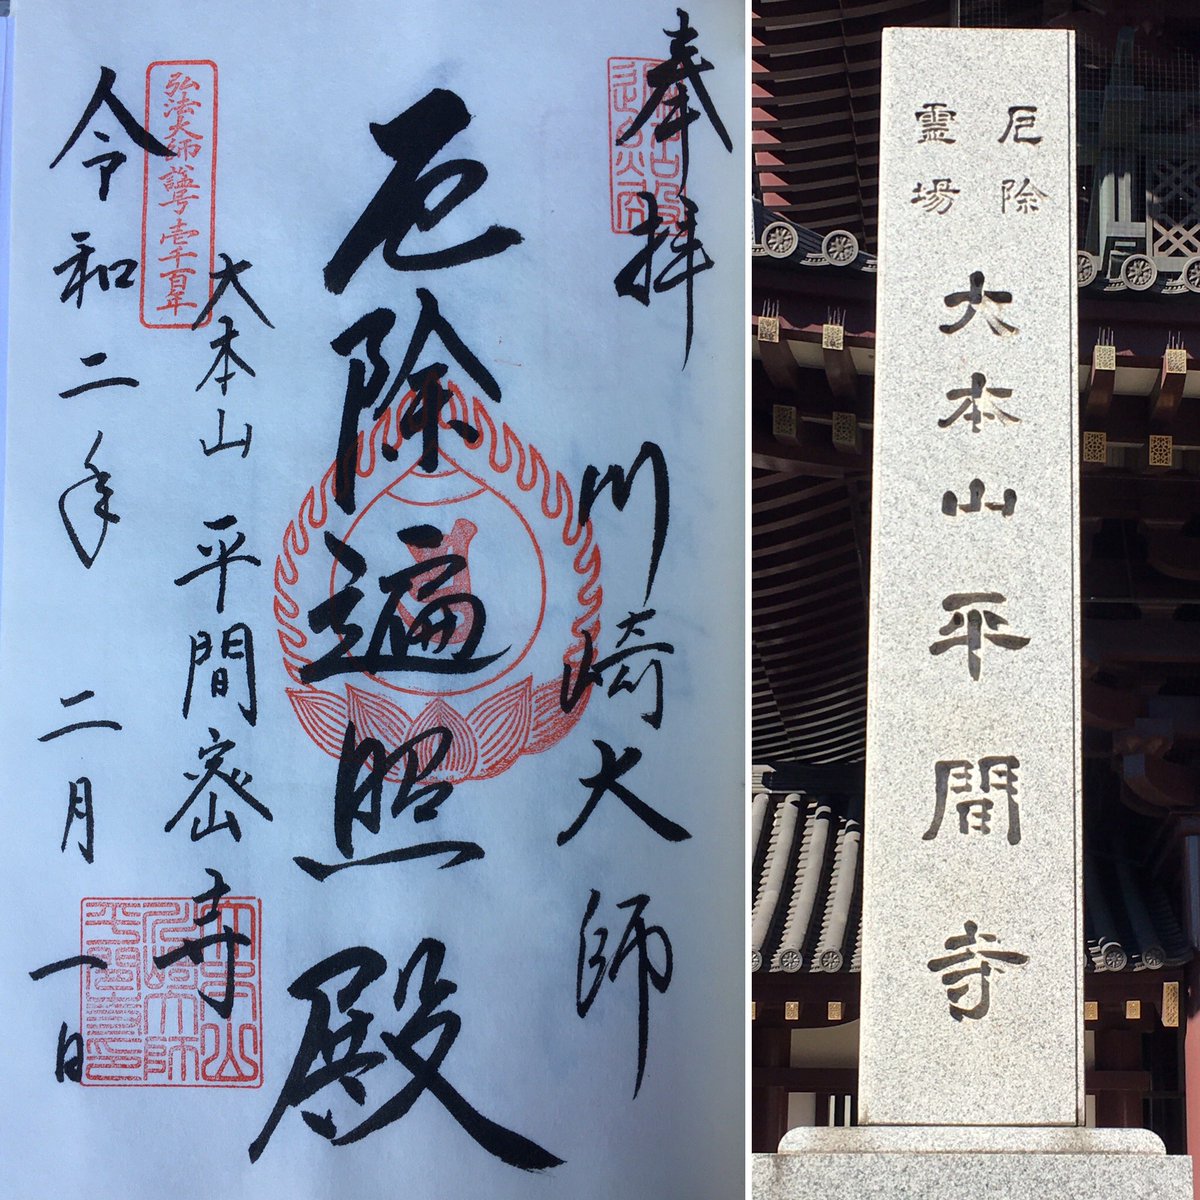 奉拝
川崎大師
厄除遍照殿
大本山 平間密寺
弘法大師諡号壱千百年
令和二年 二月 一日
厄除
霊場
大本山平間寺